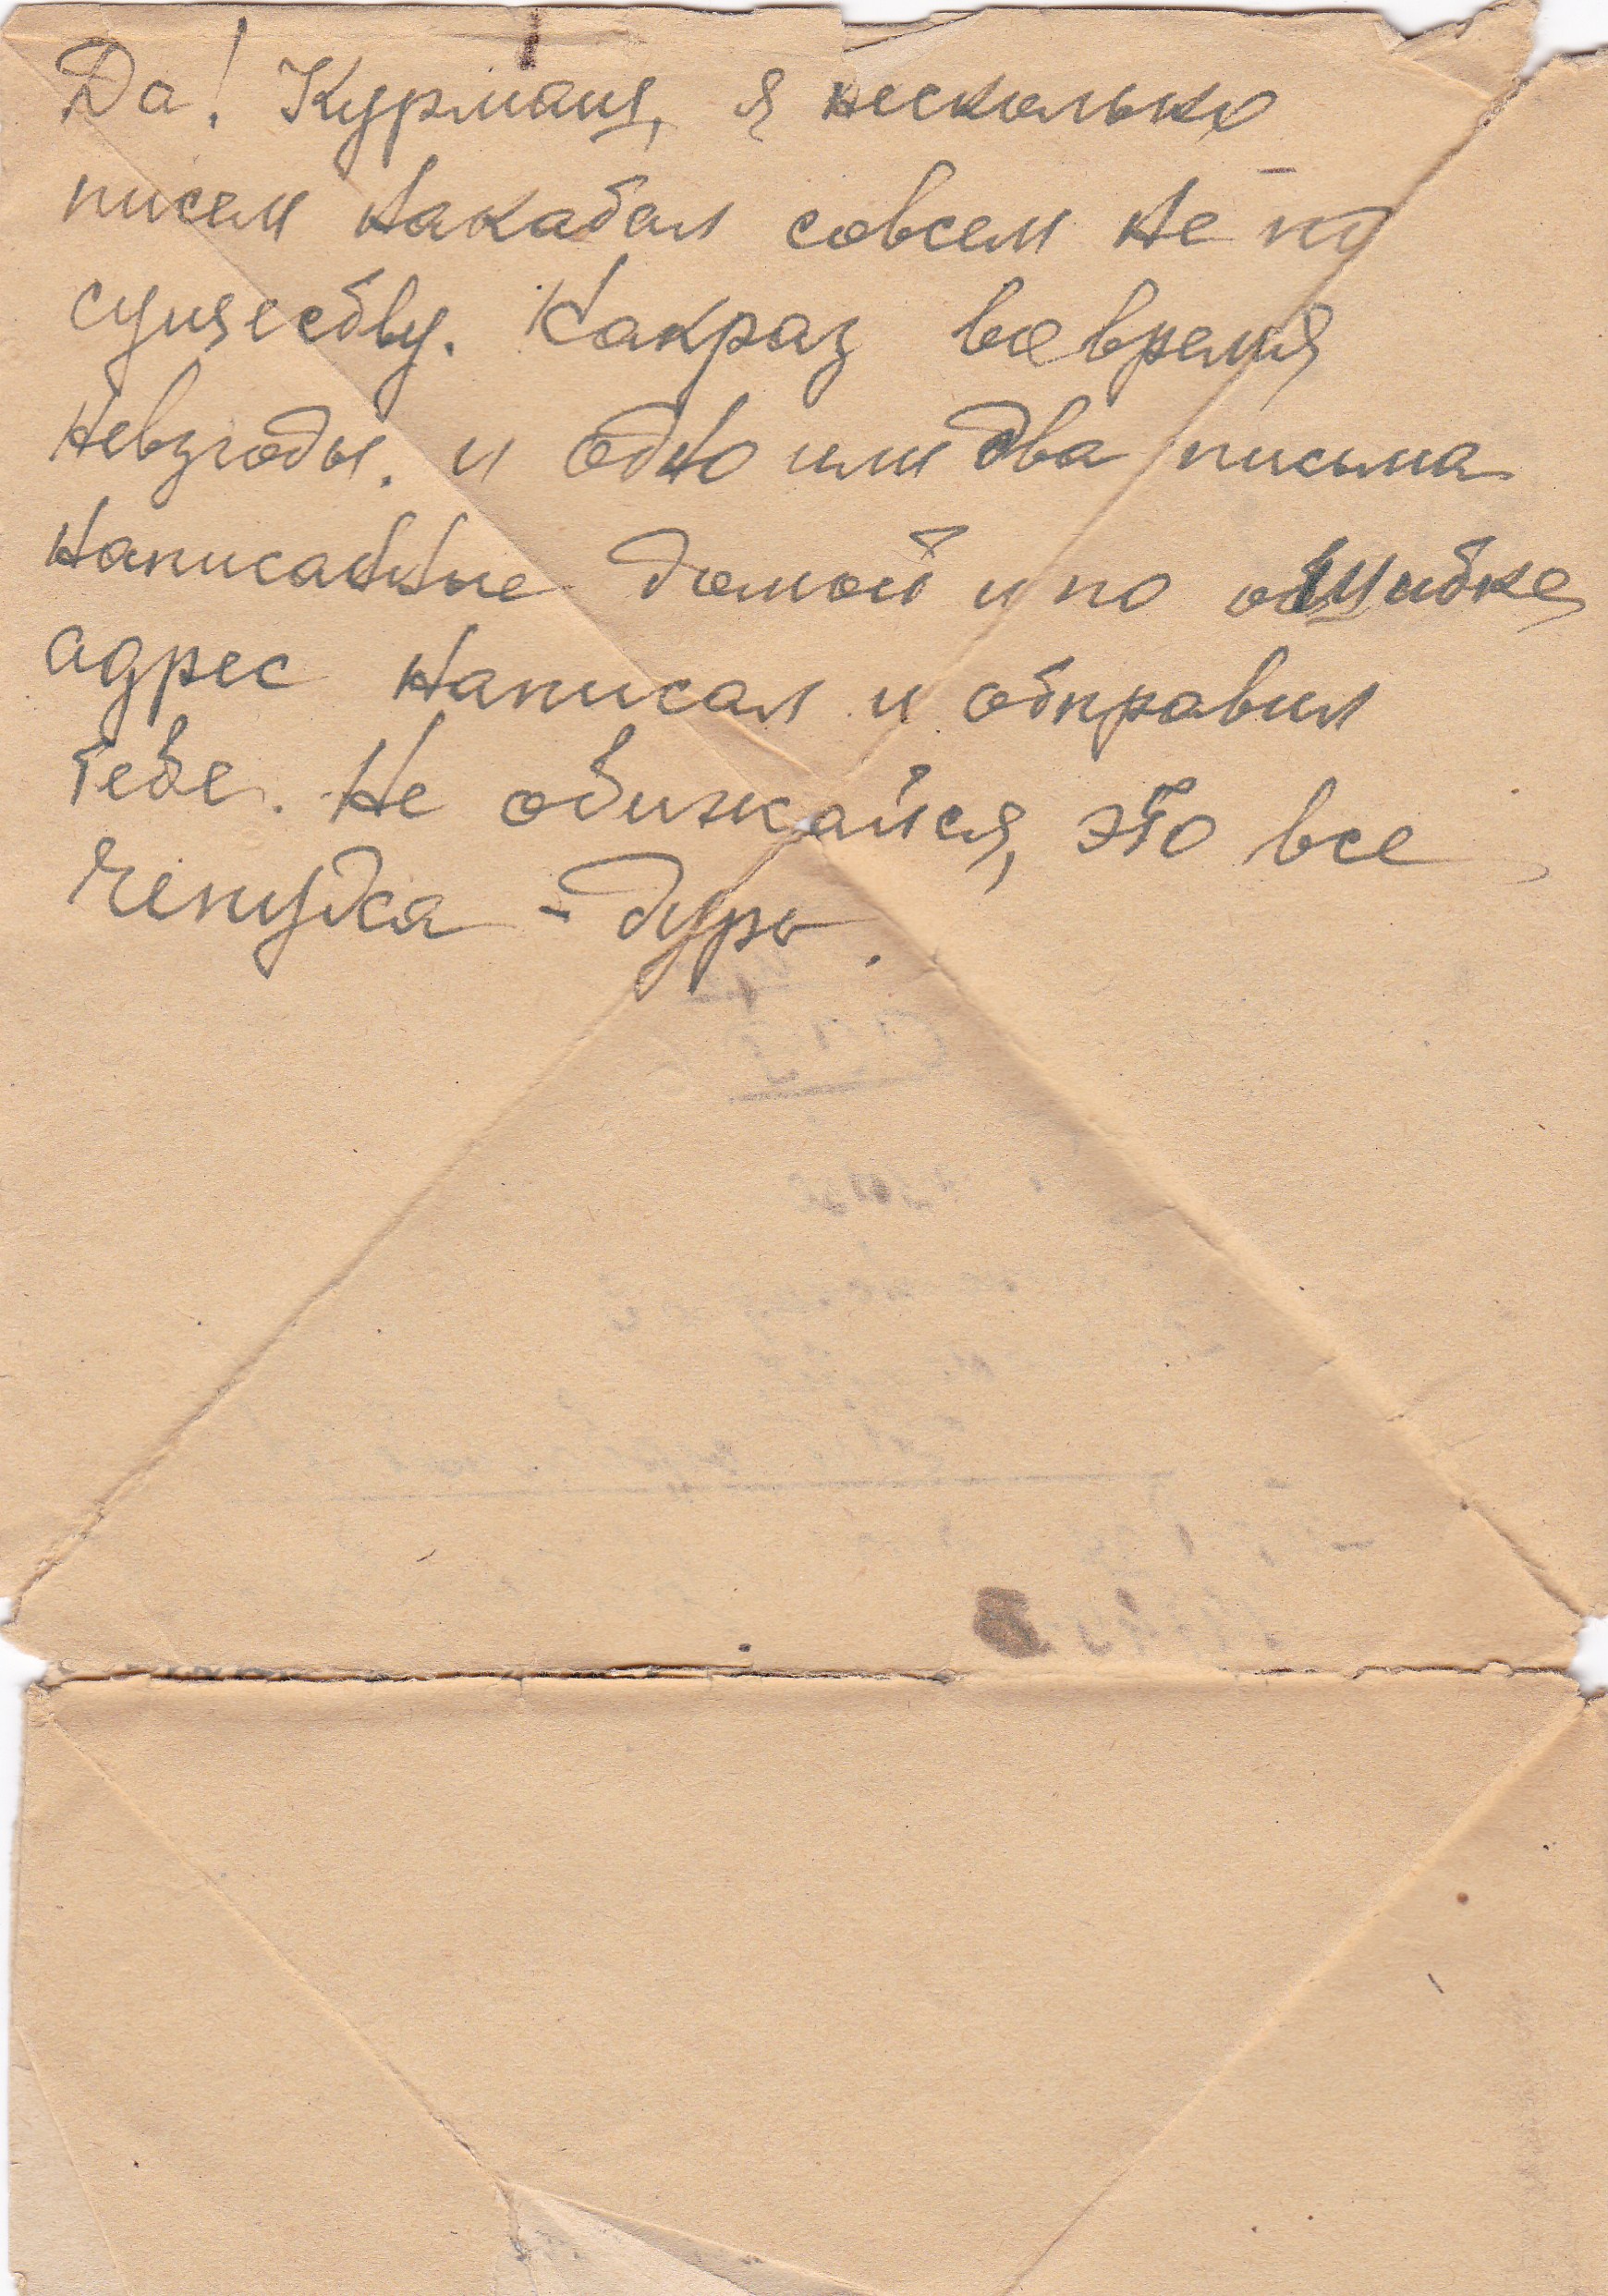 Да! Курмаш, я несколько
писем накатал совсем не по
существу. Какраз вовремя
невзгоды. и одно или два письма
написанные домой и по ошибке
адрес написал и отправил
тебе. Не обижайся, это все
чепуха - дурь.